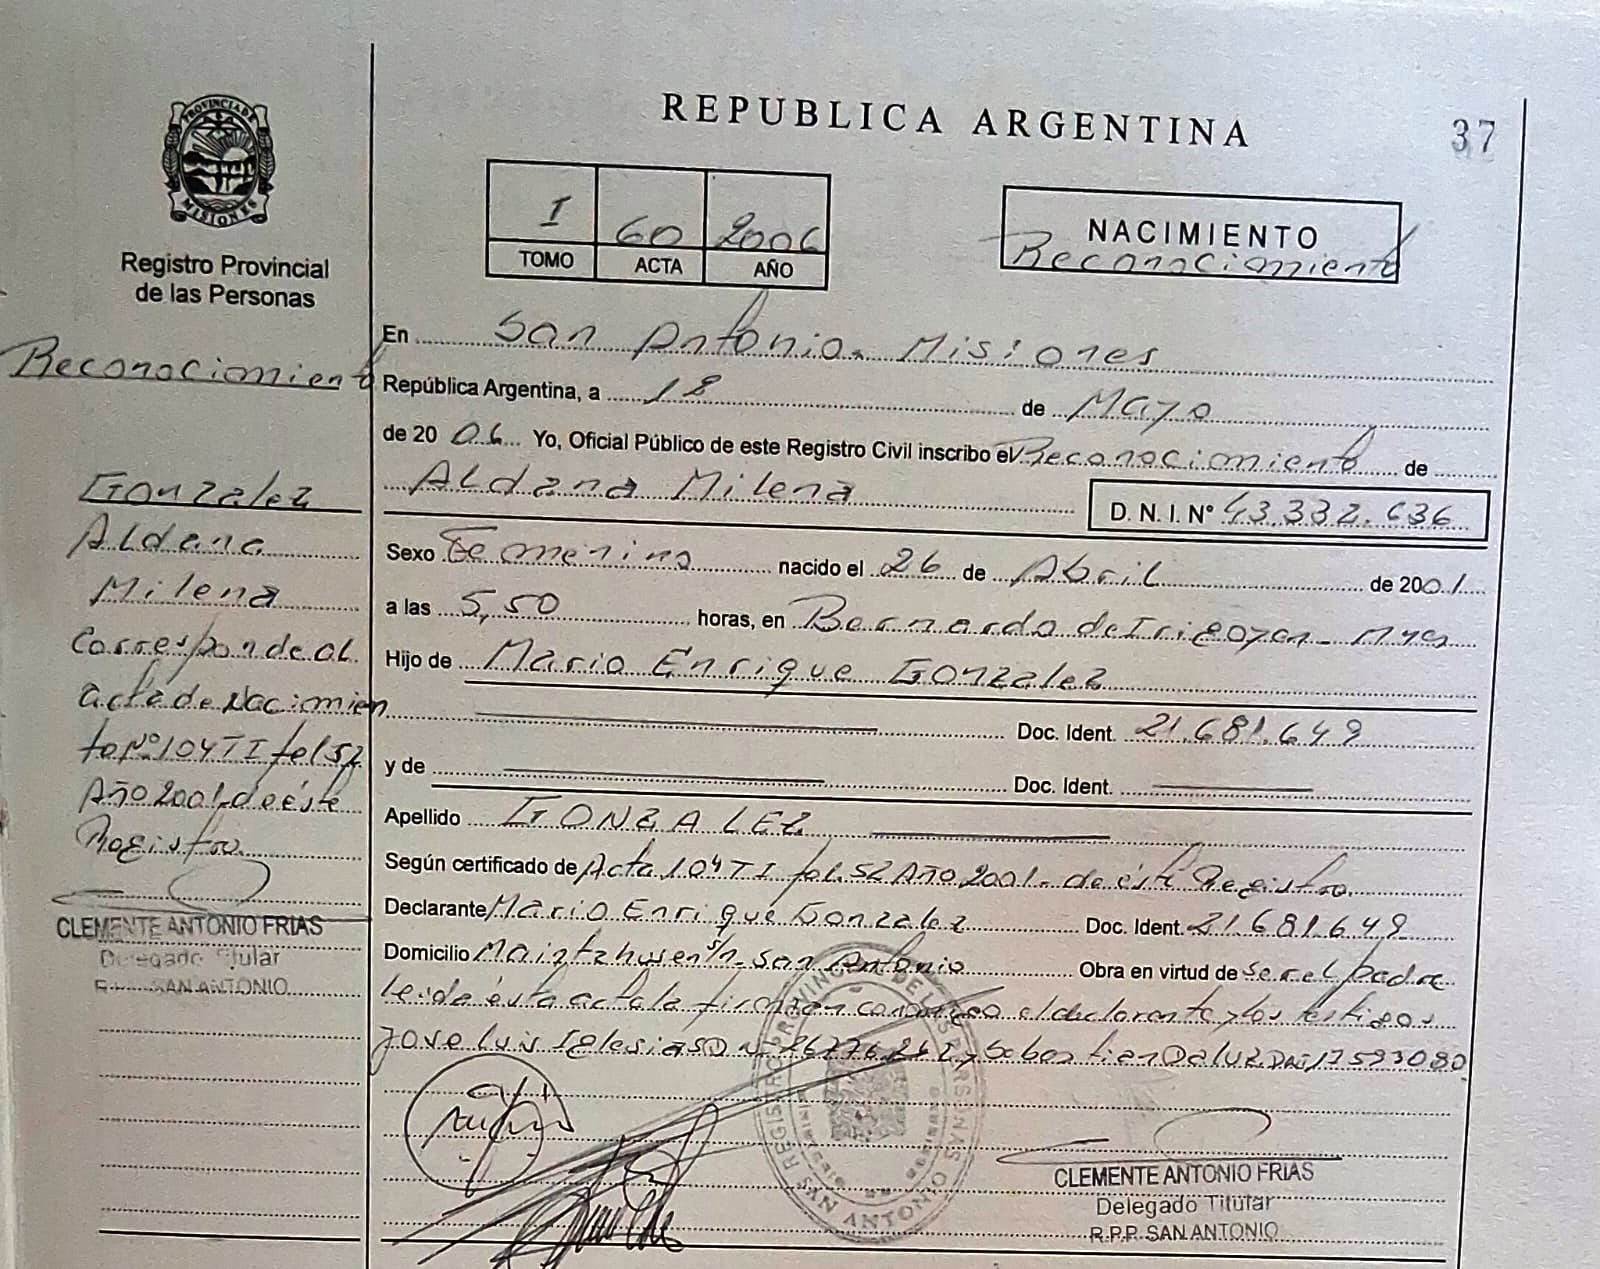 REPUBLICA ARGENTINA
37
PROVINCIA DE
MISIONES
Registro Provincial
de las Personas
I 60 2006
TOMO ACTA AÑO
NACIMIENTO
Reconocimiento
Reconocimiento
Gonzalez
Aldana
Milena
Corresponde al
acta de Nacimien
to Nº 104 T I fol 52
Año 2001. de éste
Registro.
CLEMENTE ANTONIO FRIAS
Delegado Titular
R.P.P. SAN ANTONIO
En San Antonio. Misiones
República Argentina, a 18 de Mayo
de 20 06 Yo, Oficial Público de este Registro Civil inscribo el Reconocimiento de
Aldana Milena D. N. I. Nº 43.332.636
Sexo Femenino nacido el 26 de Abril de 2001
a las 5,50 horas, en Bernardo de Irigoyen - Mnes
Hijo de Mario Enrique Gonzalez
Doc. Ident. 21.681.649
y de Doc. Ident.
Apellido GONZALEZ
Según certificado de Acta 104 T I fol. 52 Año 2001. de éste Registro.
Declarante Mario Enrique Gonzalez Doc. Ident. 21.681.649
Domicilio s/n. San Antonio Obra en virtud de ser el padre
Leida ésta acta la firman conmigo el declarante y los testigos
Jose Luis Iglesias y Sebastian Da Luz DNI 17593080
REGISTRO PROVINCIAL DE LAS PERSONAS
SAN ANTONIO
CLEMENTE ANTONIO FRIAS
Delegado Titular
R.P.P. SAN ANTONIO